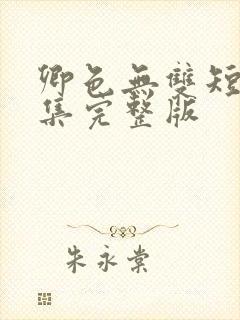 卿色無雙短
集完整版
朱永棠